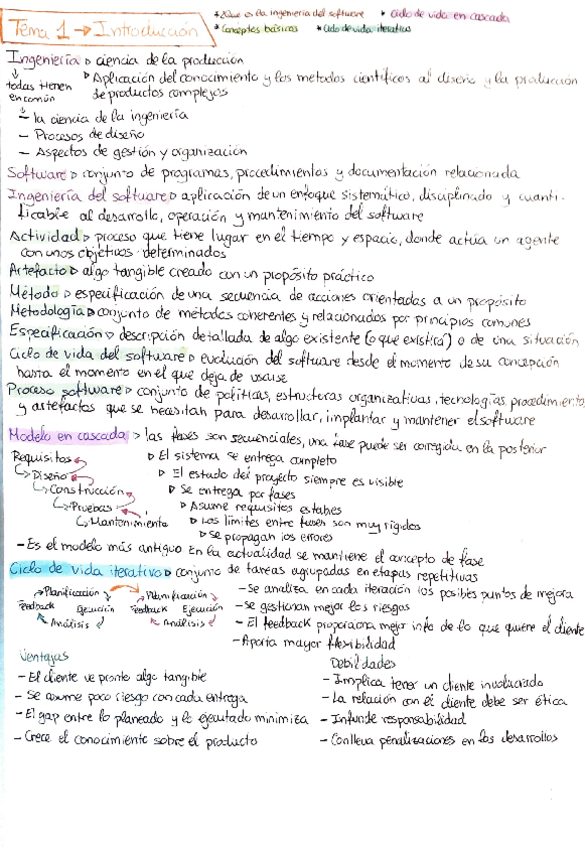 Tema 1 → Introducción
* ¿Qué es la ingeniería del software
* Ciclo de vida en cascada
* Conceptos básicos
* Ciclo de vida iterativo
Ingeniería ▷ ciencia de la producción
↓ todas tienen en común
▷ Aplicación del conocimiento y los métodos científicos al diseño y la producción
de productos complejos
- la ciencia de la ingeniería
- Procesos de diseño
- Aspectos de gestión y organización
Software ▷ conjunto de programas, procedimientos y documentación relacionada
Ingeniería del software ▷ aplicación de un enfoque sistemático, disciplinado y cuanti-
ficable al desarrollo, operación y mantenimiento del software
Actividad ▷ proceso que tiene lugar en el tiempo y espacio, donde actúa un agente
con unos objetivos determinados
Artefacto ▷ algo tangible creado con un propósito práctico
Método ▷ especificación de una secuencia de acciones orientadas a un propósito
Metodología ▷ conjunto de métodos coherentes y relacionados por principios comunes
Especificación ▷ descripción detallada de algo existente (o que existirá) o de una situación
Ciclo de vida del software ▷ evolución del software desde el momento de su concepción
hasta el momento en el que deja de usarse
Proceso software ▷ conjunto de políticas, estructuras organizativas, tecnologías, procedimientos
y artefactos que se necesitan para desarrollar, implantar y mantener el software
Modelo en cascada ▷ las fases son secuenciales, una fase puede ser corregida en la posterior
Requisitos
Diseño
Construcción
Pruebas
Mantenimiento
▷ El sistema se entrega completo
▷ El estado del proyecto siempre es visible
▷ Se entrega por fases
▷ Asume requisitos estables
▷ Los límites entre fases son muy rígidos
▷ Se propagan los errores
- Es el modelo más antiguo En la actualidad se mantiene el concepto de fase
Ciclo de vida iterativo ▷ conjunto de tareas agrupadas en etapas repetitivas
Planificación → Planificación
Feedback Ejecución Feedback Ejecución
Análisis Análisis
- Se analiza en cada iteración los posibles puntos de mejora
- Se gestionan mejor los riesgos
- El feedback proporciona mejor info de lo que quiere el cliente
- Aporta mayor flexibilidad
Ventajas
- El cliente ve pronto algo tangible
- Se asume poco riesgo con cada entrega
- El gap entre lo planeado y lo ejecutado minimiza
- Crece el conocimiento sobre el producto
Debilidades
- Implica tener un cliente involucrado
- La relación con el cliente debe ser ética
- Infunde responsabilidad
- Conlleva penalizaciones en los desarrollos